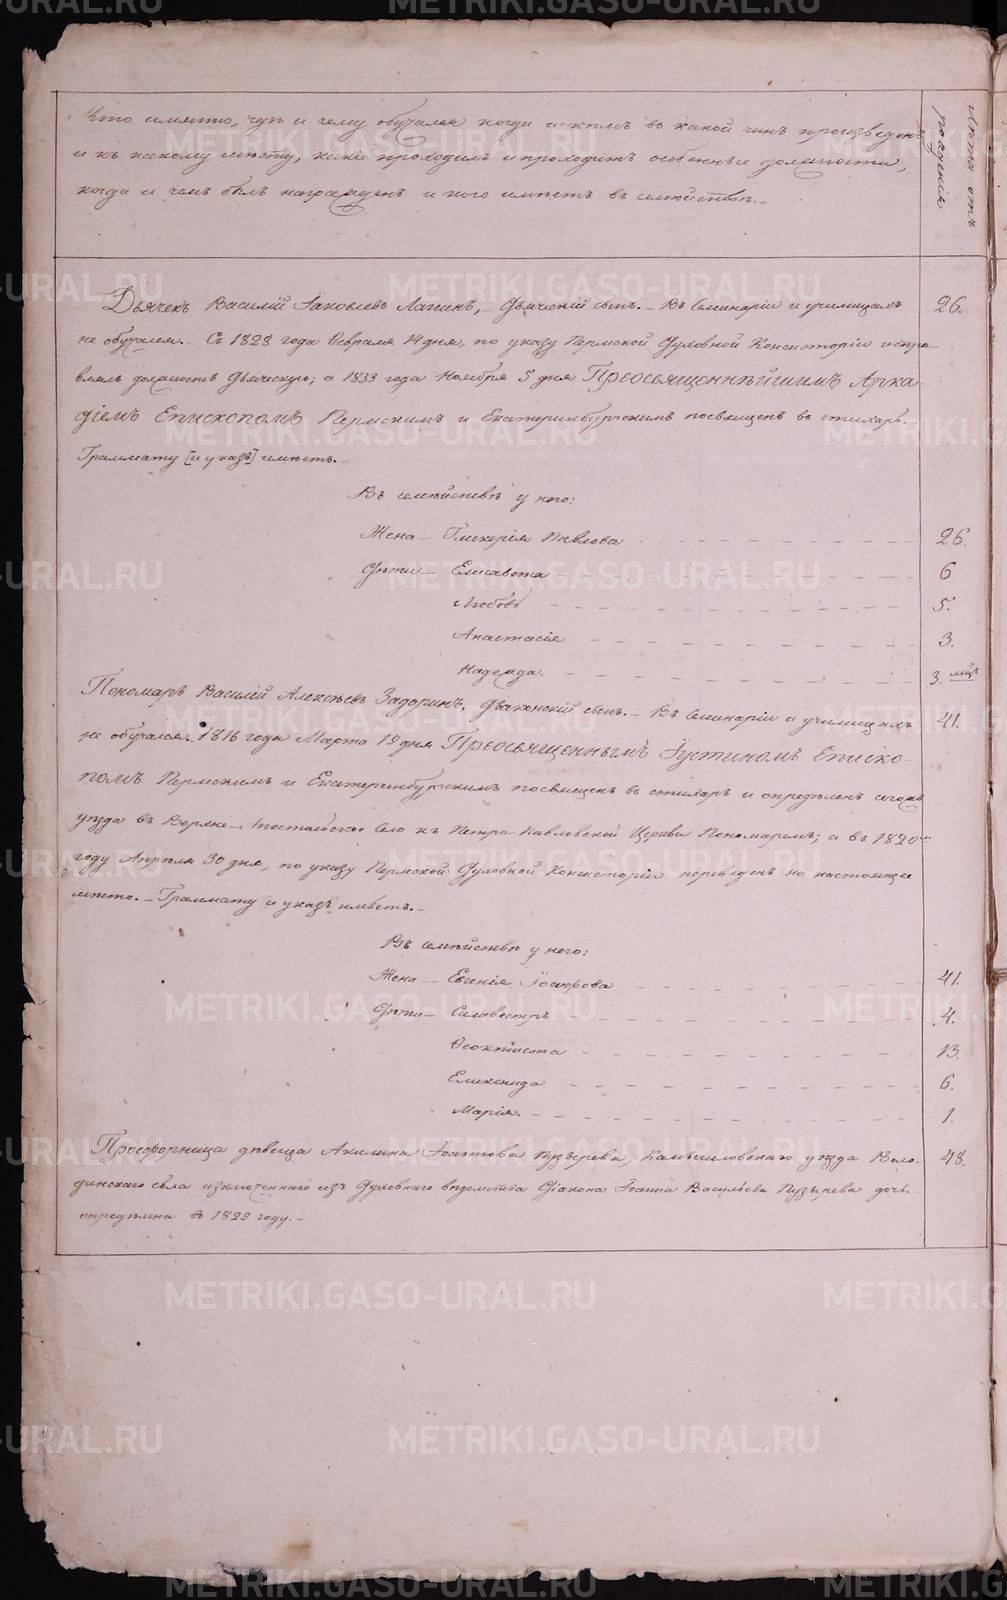 Кто именно, гдѣ и чему обучался когда и кѣмъ въ какой чинъ произведенъ
и къ какому мѣсту, какія проходилъ и проходитъ особенныя должности,
когда и чемъ былъ награжденъ и кого имѣетъ въ семействѣ.
Лѣта отъ
рожденія
Дьячекъ Василій Іаковлевъ Лапинъ, Дьяческій сынъ. – Въ Семинаріи и училищахъ 26.
не обучался. С 1828 года Февраля 14 дня, по указу Пермской Духовной Консисторіи испра
влялъ должность Дьяческую; а 1833 года Ноября 5 дня Преосвященнѣйшимъ Арка-
діемъ Епископомъ Пермскимъ и Екатеринбургскимъ посвященъ въ стихарь.
Граммату [и указъ] имѣетъ. –
Въ семѣйствѣ у него:
Жена – Гликерія Павлова 26.
Дѣти – Елисавета 6
Любовь 5.
Анастасія 3.
Надежда. 3 мѣс.
Пономарь Василій Алексѣевъ Задоринъ, Дьяконскій сынъ. – Въ Семинаріи и училищахъ 41.
не обучался. 1816 года Марта 19 дня Преосвященнымъ Іустиномъ Еписко-
помъ Пермскимъ и Екатеринбургскимъ посвященъ въ стихарь и опредѣленъ сегожъ
уѣзда въ Село къ Петро-Павловской Церкви Пономаремъ; а въ 1820мъ
году Апрѣля 30 дня, по указу Пермской Духовной Консисторіи переведенъ на настоящее
мѣсто. – Граммату и указъ имѣетъ. –
Въ семѣйствѣ у него:
Жена – Евгенія 41.
Дѣти – Силвестръ 4.
Феоктиста 13.
Еликонида 6.
Марія. 1.
Просфорница дѣвица Акилина Іоаннова Пузырева, Камышловскаго уѣзда Воло- 48.
динскаго села изключеннаго изъ Духовнаго вѣдомства Діакона Іоанна Васильева Пузырева дочь.
опредѣлена въ 1829 году. –
METRIKI.GASO-URAL.RU